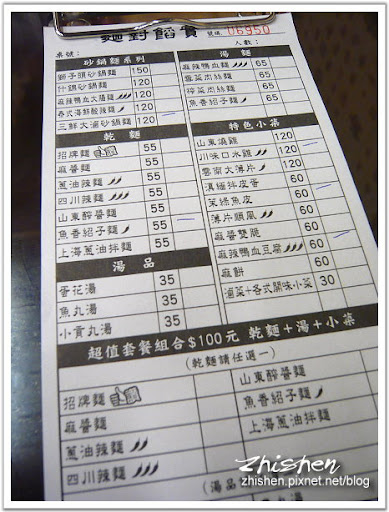 麵對餡實 號碼 06950
桌號： 人數：
砂鍋麵系列
獅子頭砂鍋麵 150
什錦砂鍋麵 120
麻辣鴨血大腸麵 120
泰式海鮮酸辣麵 120
三鮮大滷砂鍋麵 120
乾麵
招牌麵 55
麻醬麵 55
蔥油辣麵 55
四川辣麵 55
山東醡醬麵 55
魚香紹子麵 55
上海蔥油拌麵 55
湯品
蛋花湯 35
魚丸湯 35
小貢丸湯 35
湯麵
麻辣鴨血麵 65
雪菜肉絲麵 65
榨菜肉絲麵 65
魚香紹子麵 65
特色小菜
山東燒雞 120
川味口水雞 120
雲南大薄片 120
滇緬拌皮蛋 60
蔥綠魚皮 60
薄片頭腐 60
麻醬雙脆 60
麻辣鴨血豆腐 60
麻餅 60
滷菜+各式開味小菜 30
超值套餐組合$100元 乾麵+湯+小菜
(乾麵請任選一)
招牌麵
麻醬麵
蔥油辣麵
四川辣麵
山東醡醬麵
魚香紹子麵
上海蔥油拌麵
(湯品
zhishen
zhishen.pixnet.net/blog